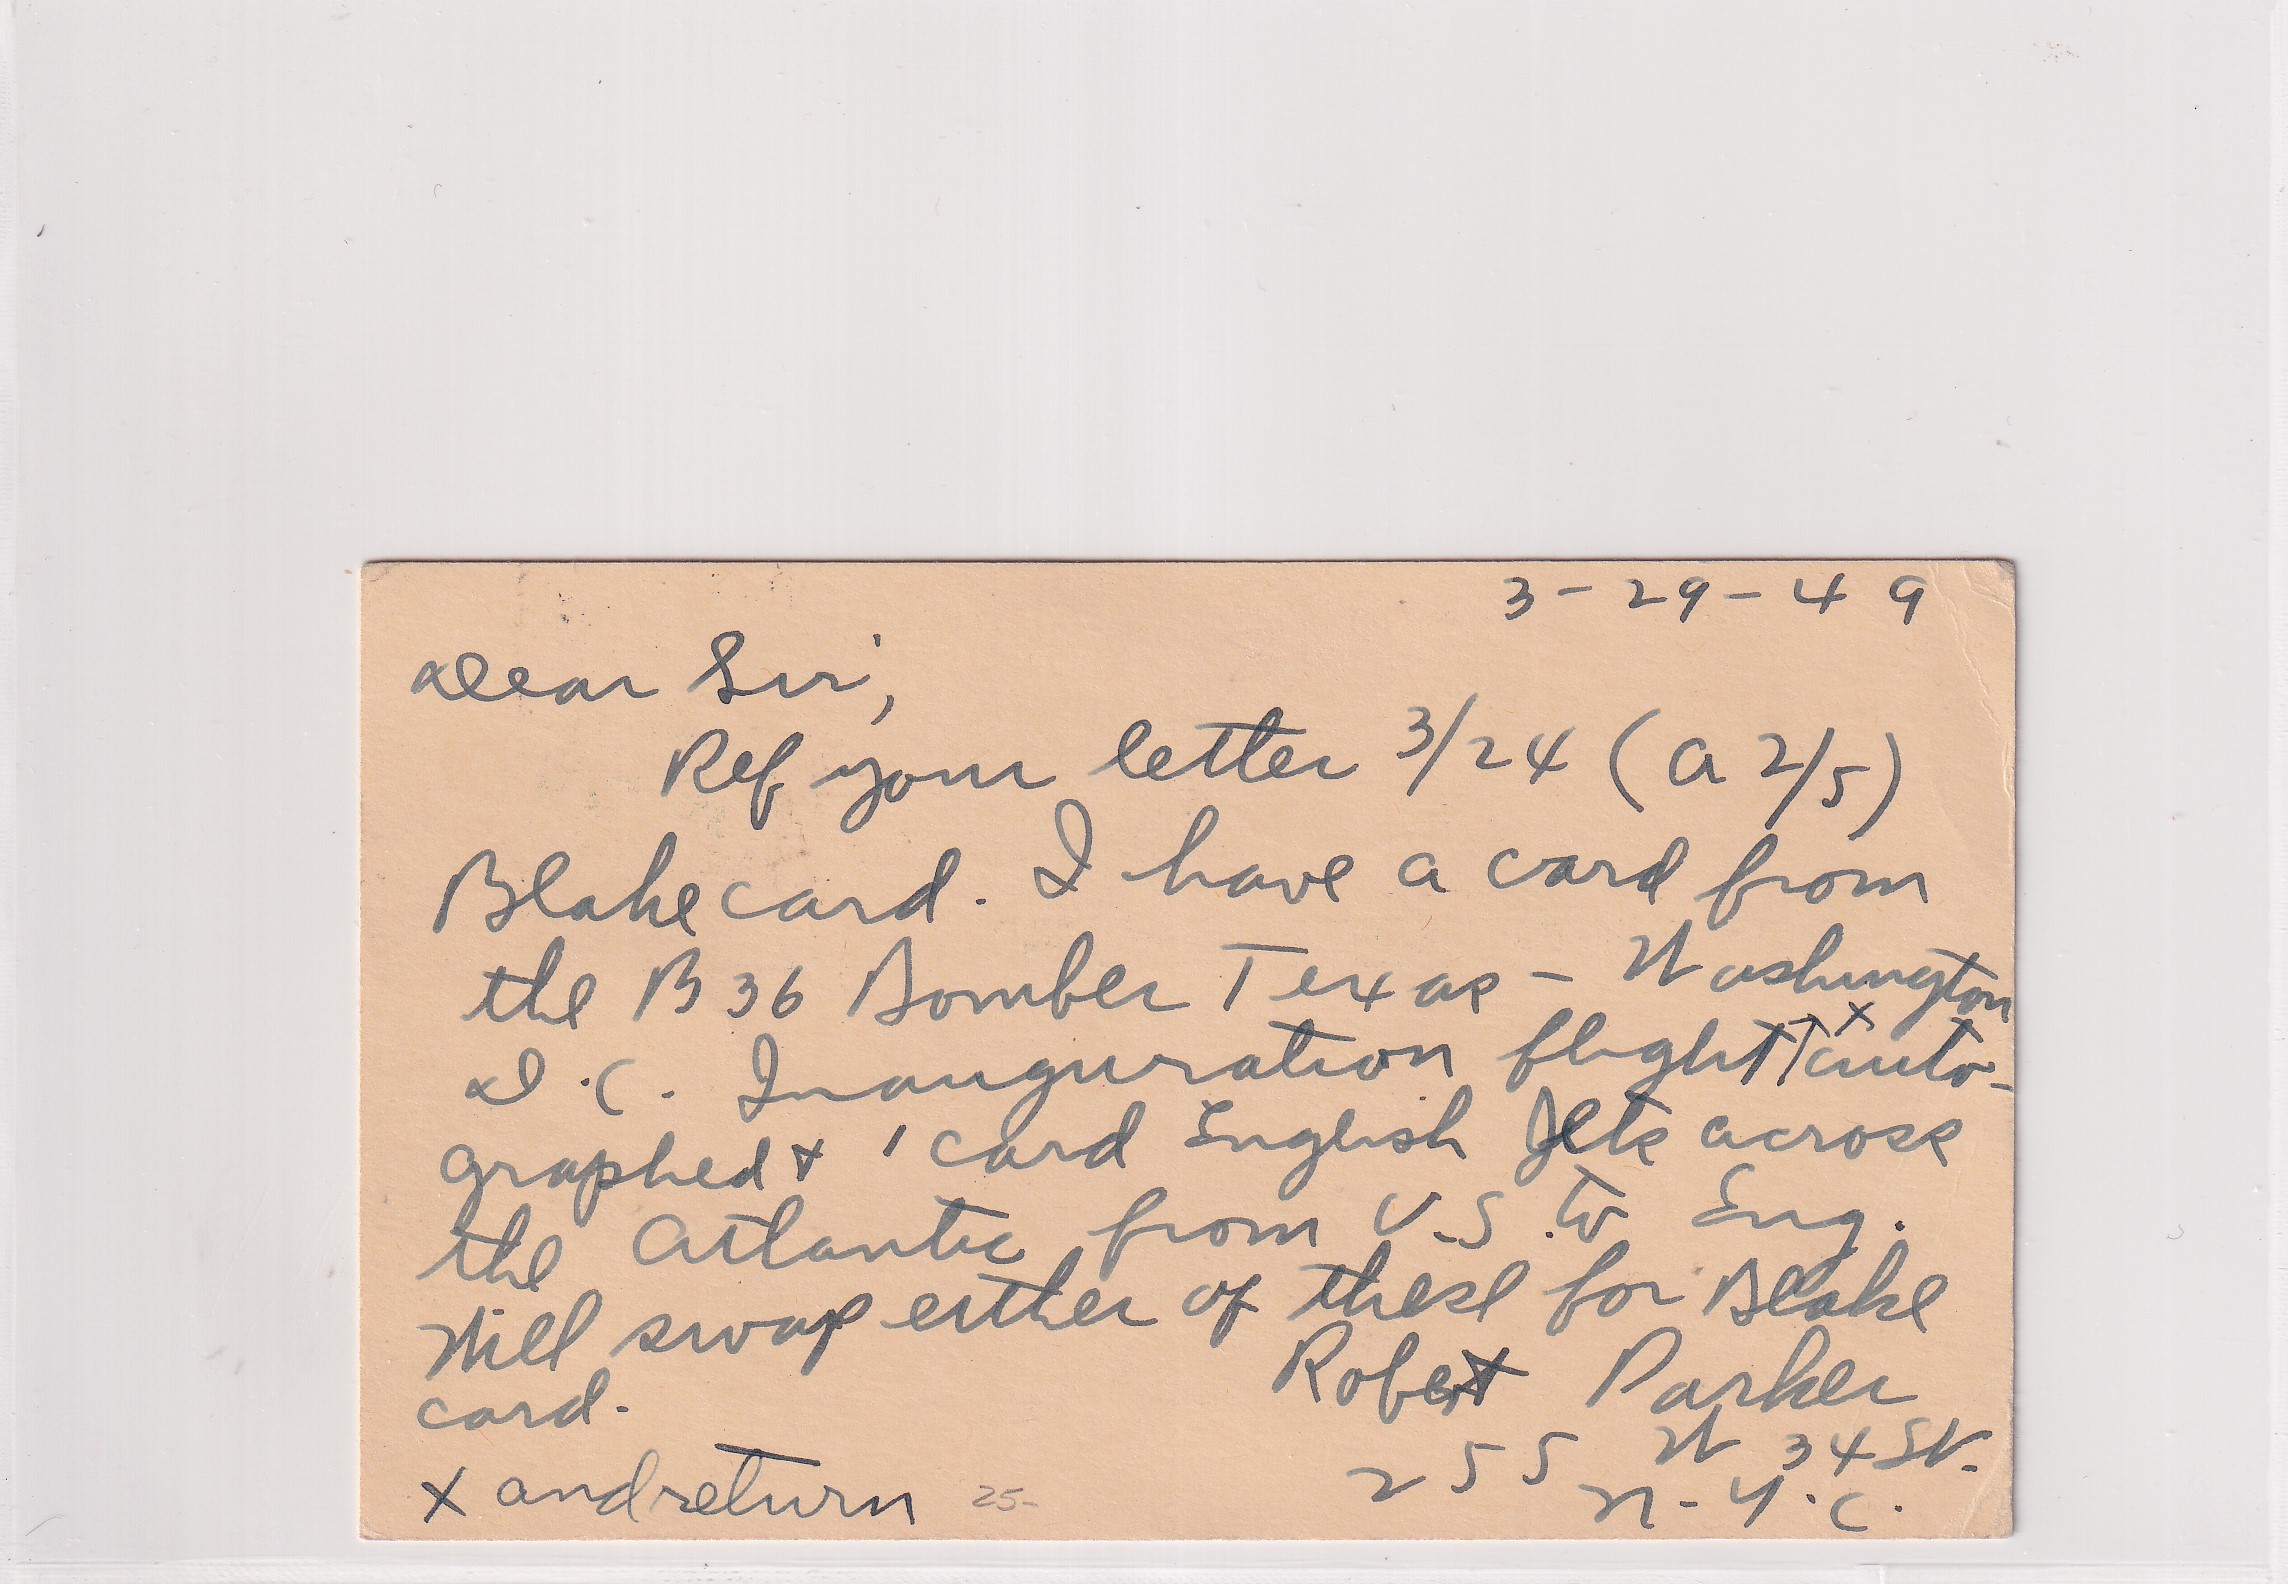 3-29-49
Dear Sir,
Ref your letter 3/24 (a 2/5)
Blake card. I have a card from
the B 36 Bomber Texas - Washington
D.C. Inauguration flight ↑ x auto-
graphed + 1 card English Jets across
the Atlantic from U.S. to Eng.
Will swap either of these for Blake
card.
Robert Parker
255 W 34 St.
N.Y.C.
x and return 25-